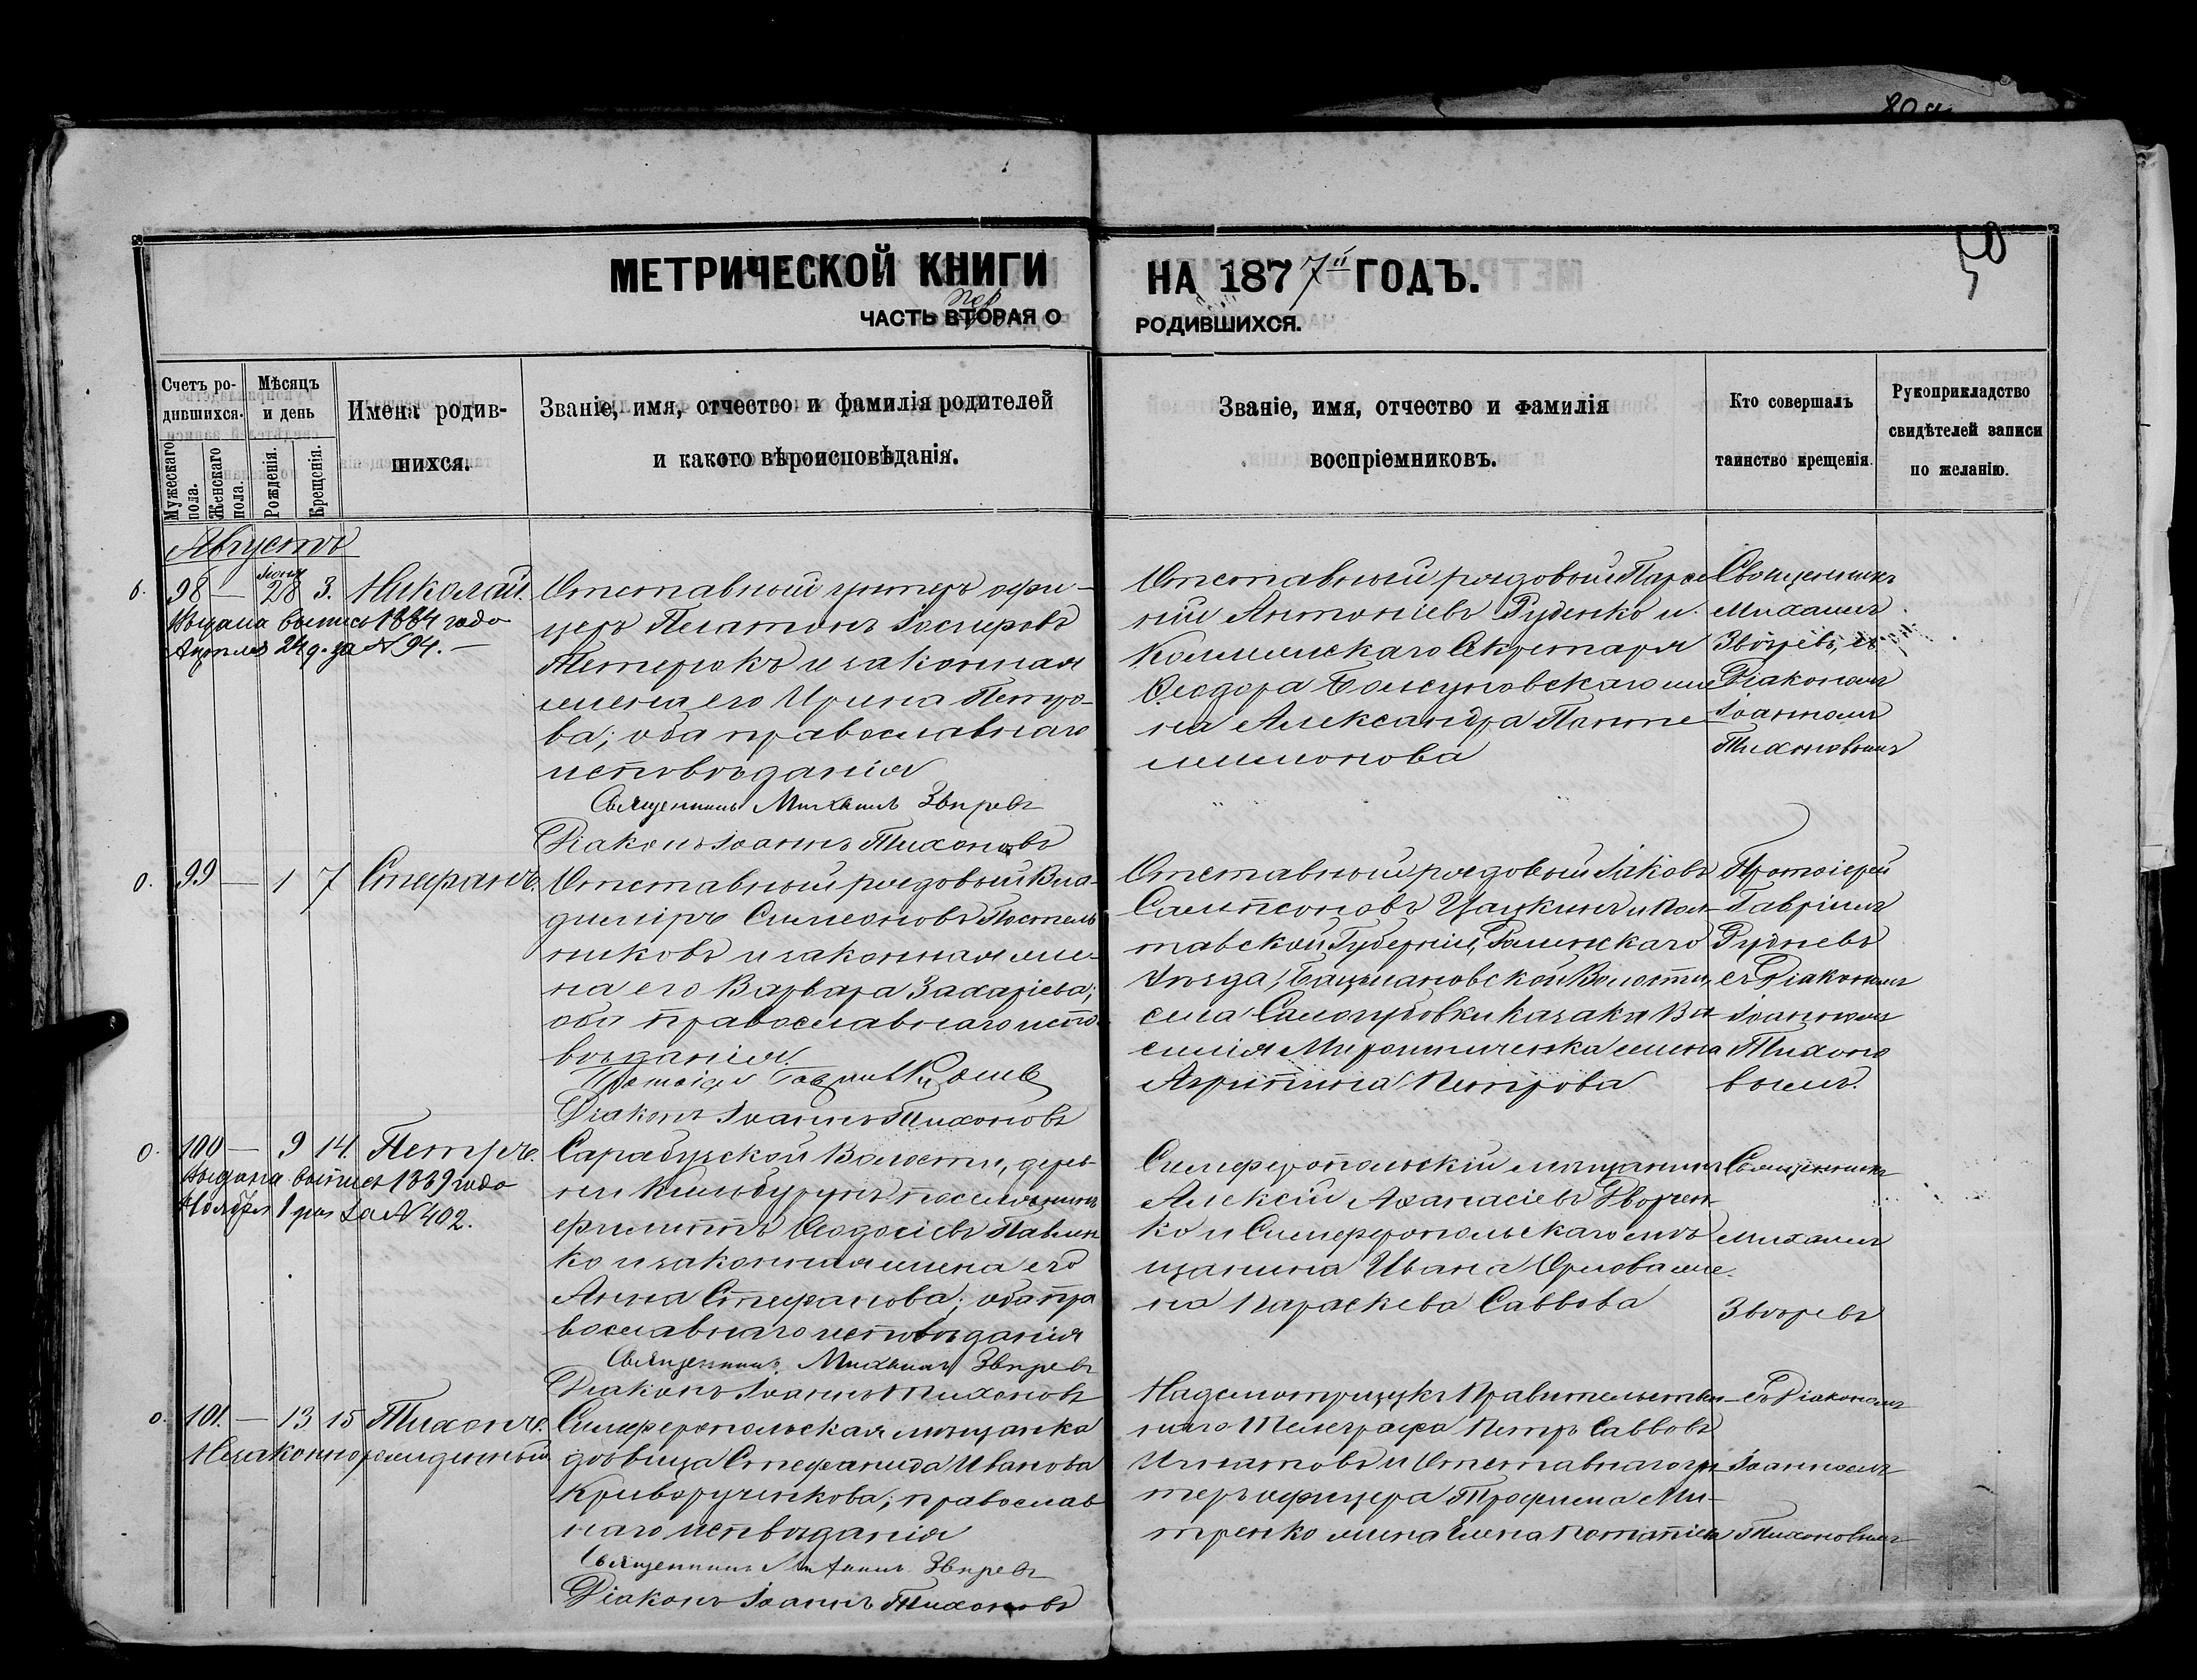 80а
МЕТРИЧЕСКОЙ КНИГИ НА 1877й ГОДЪ.
50
ЧАСТЬ ВТОРАЯ О РОДИВШИХСЯ.
пер
Счетъ родившихся.
Мужескаго пола.
Женскаго пола.
Мѣсяцъ и день
Рожденія.
Крещенія.
Имена родившихся.
Званіе, имя, отчество и фамилія родителей
и какого вѣроисповѣданія.
Званіе, имя, отчество и фамилія
воспріемниковъ.
Кто совершалъ
таинство крещенія.
Рукоприкладство
свидѣтелей записи
по желанію.
Августъ
98 — 28 3. Николай.
Выдана выпись 1884 года
Апрѣля 24 д. за № 94. —
Отставной унтеръ офи-
церъ Платонъ Іосифовъ
и законная
жена его Ирина Петро-
ва; оба православнаго
исповѣданія
Священникъ Михаилъ Звѣревъ
Діаконъ Іоаннъ Тихоновъ
Отставной рядовой
Антоніевъ Руденко и
Коллежскаго Секретаря
Ѳеодора же-
на Александра Панте-
леимонова
Священникъ
Михаилъ
Звѣревъ, съ
Діакономъ
Іоанномъ
Тихоновымъ
99 — 1 7 Стефанъ.
Отставной рядовой Вла-
диміръ Симеоновъ Постель
никовъ и законная же-
на его Варвара Захаріева;
оба православнаго испо-
вѣданія
Протоіерей Гавріилъ Рудневъ
Діаконъ Іоаннъ Тихоновъ
Отставной рядовой Іаковъ
Сампсоновъ Цацкинъ и Пол-
тавской Губерніи, Роменскаго
Уѣзда, Волости,
села казака Ва
силія Мирошниченка жена
Агрипина Петрова
Протоіерей
Гавріилъ
Рудневъ
съ Діакономъ
Іоанномъ
Тихоно
вымъ.
100 — 9 14. Петръ.
Выдана выпись 1889 года
Ноября 1 дня за № 402.
Сарабузской Волости, дерев-
ни Кильбурунъ поселянинъ
Филиппъ Ѳеодосіевъ Павлен
ко и законная жена его
Анна Стефанова; оба пра
вославнаго исповѣданія
Священникъ Михаилъ Звѣревъ
Діаконъ Іоаннъ Тихоновъ
Симферопольскій мѣщанинъ
Алексій Аѳанасіевъ
ко и Симферопольскаго мѣ-
щанина Ивана Орлова же-
на Параскева Саввова
Священникъ
Михаилъ
Звѣревъ
101. — 13 15 Тихонъ.
Незаконнорожденный
Симферопольская мѣщанка
дѣвица Стефанида Иванова
Криворученкова; православ
наго исповѣданія
Священникъ Михаилъ Звѣревъ
Діаконъ Іоаннъ Тихоновъ
Надсмотрщикъ Правительствен-
наго Телеграфа Петръ Саввовъ
Игнатовъ и Отставнаго ун
теръ офицера Трофима Ми-
тренко жена Елена Потапіева
съ Діакономъ
Іоанномъ
Тихоновымъ